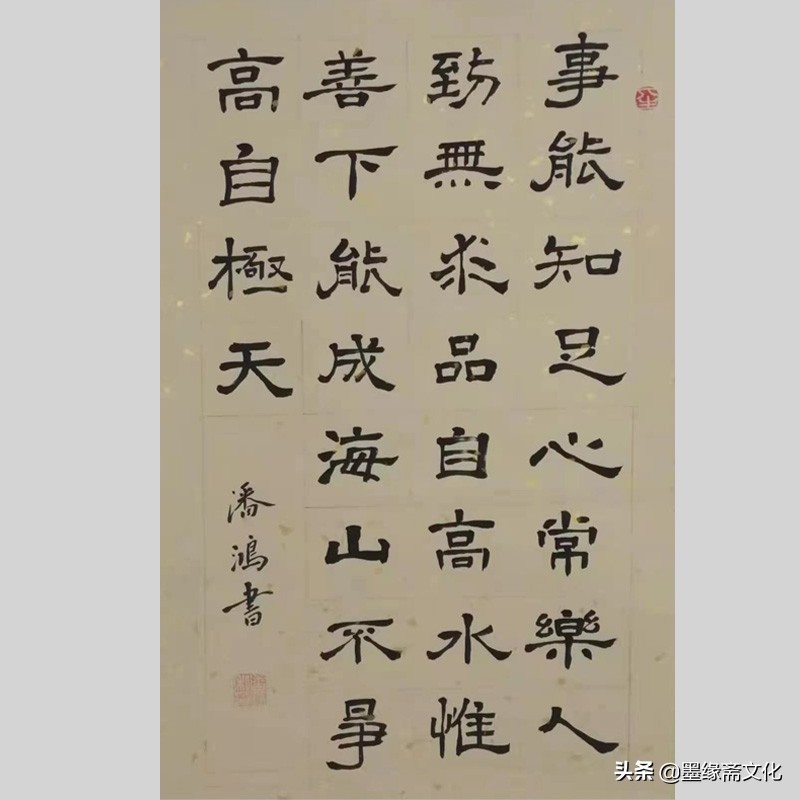 事能知足心常樂人
到無求品自高水惟
善下能成海山不爭
高自極天
潘鴻書
头条 @墨缘斋文化